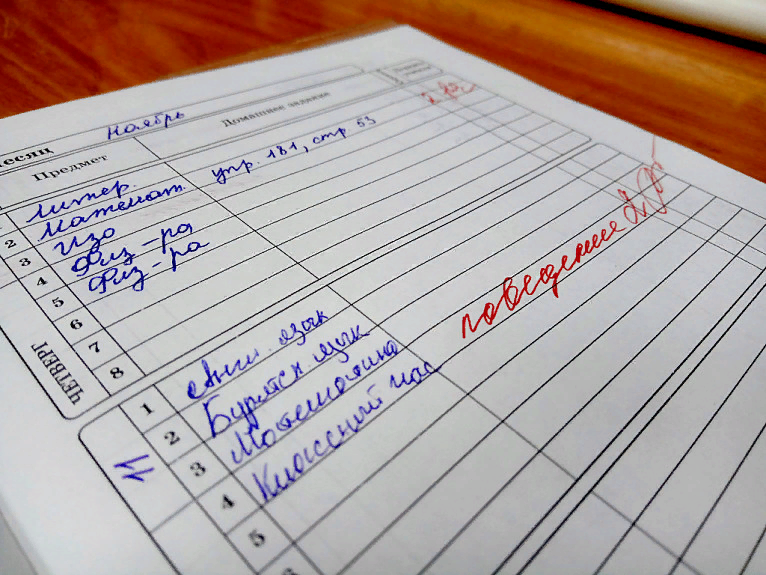 месяц ноябрь
Предмет Домашнее задание
1 литер. 2
2 математ. упр. 181, стр 53
3 изо
4 Физ-ра
5 Физ-ра
6
7
8
ЧЕТВЕРГ
1 Англ. язык
2 Бурятск. язык поведение 2
3 Математика
4 Классный час
5
11